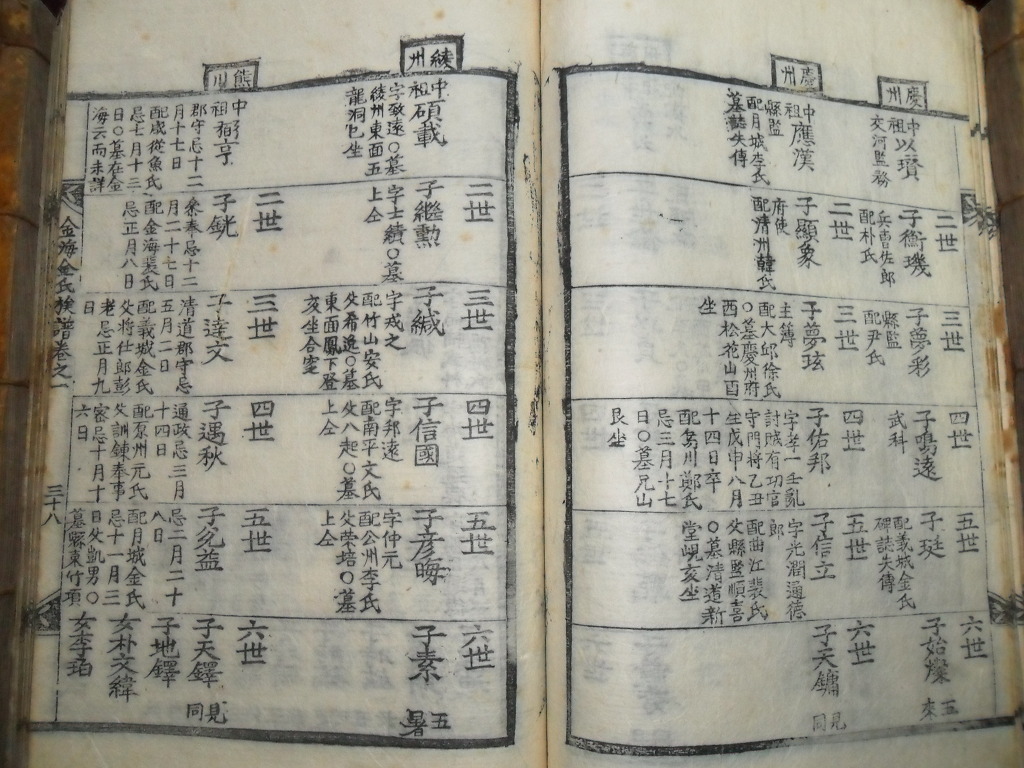 慶州
中祖以瓚
交河監務
二世
子衛璣
兵曹佐郎
配朴氏
三世
子夢彩
縣監
配尹氏
四世
子鳴遠
武科
五世
子珽
配義城金氏
碑誌失傳
六世
子始燦
五來
慶州
中祖應漢
縣監
配月城李氏
墓誌失傳
二世
子顯象
府使
配清洲韓氏
三世
子夢玹
主簿
配大邱徐氏
○墓慶州府
西松花山酉
坐
四世
子佑邦
字孝一壬亂
討賊有功官
守門將乙丑
生戊申八月
十四日卒
配烏川鄭氏
忌三月十七
日○墓兄山
艮坐
五世
子信立
字光潤通德
郎
配曲江裴氏
父縣監順喜
○墓清道新
堂峴亥坐
六世
子天鏞
見同
綾州
中祖碩載
字致遠○墓
綾州東面五
龍洞巳坐
二世
子繼勳
字士績○墓
上仝
三世
子緘
字戎之
配竹山安氏
父希逸○墓
東面鳳下登
亥坐合窆
四世
子信國
字邦遠
配南平文氏
父八起○墓
上仝
五世
子彥晦
字仲元
配公州李氏
父荣培○墓
上仝
六世
子素
五暑
熊川
中祖亨
郡守忌十二
月十七日
配咸從魚氏
忌七月十三
日○墓在金
海云而未詳
二世
子銧
叅奉忌十二
月二十七日
配金海裴氏
忌正月八日
三世
子達文
清道郡守忌
五月二十日
配義城金氏
父將仕郎彭
老忌正月九
日
四世
子遇秋
通政忌三月
十四日
配原州元氏
父訓鍊奉事
忌十月十
六日
五世
子益
忌二月二十
八日
配月城金氏
忌十一月三
日父凱男○
墓東竹項
六世
子天鐸
見同
子地鐸
女朴文緯
女李珀
金海金氏族譜卷之一
三十八